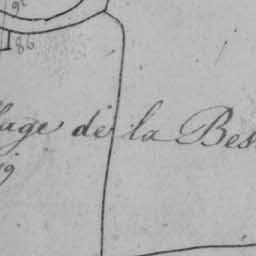 86
lage de la Bes